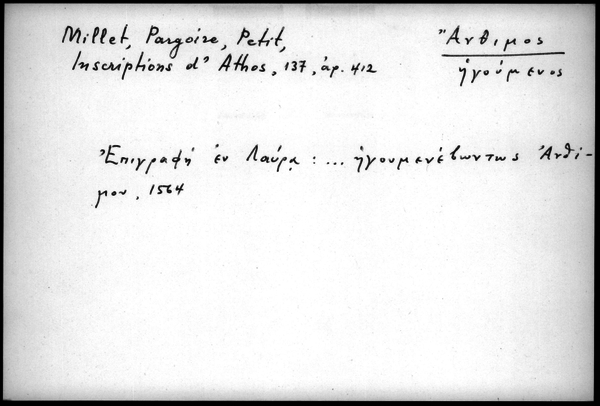 Millet, Pargoire, Petit,
Inscriptions d' Athos, 137, ἀρ. 412
Ἄνθιμος
ἡγούμενος
Ἐπιγραφή ἐν Λαύρᾳ : ... ἡγουμενέβωντως Ἀνθί-
μου, 1564